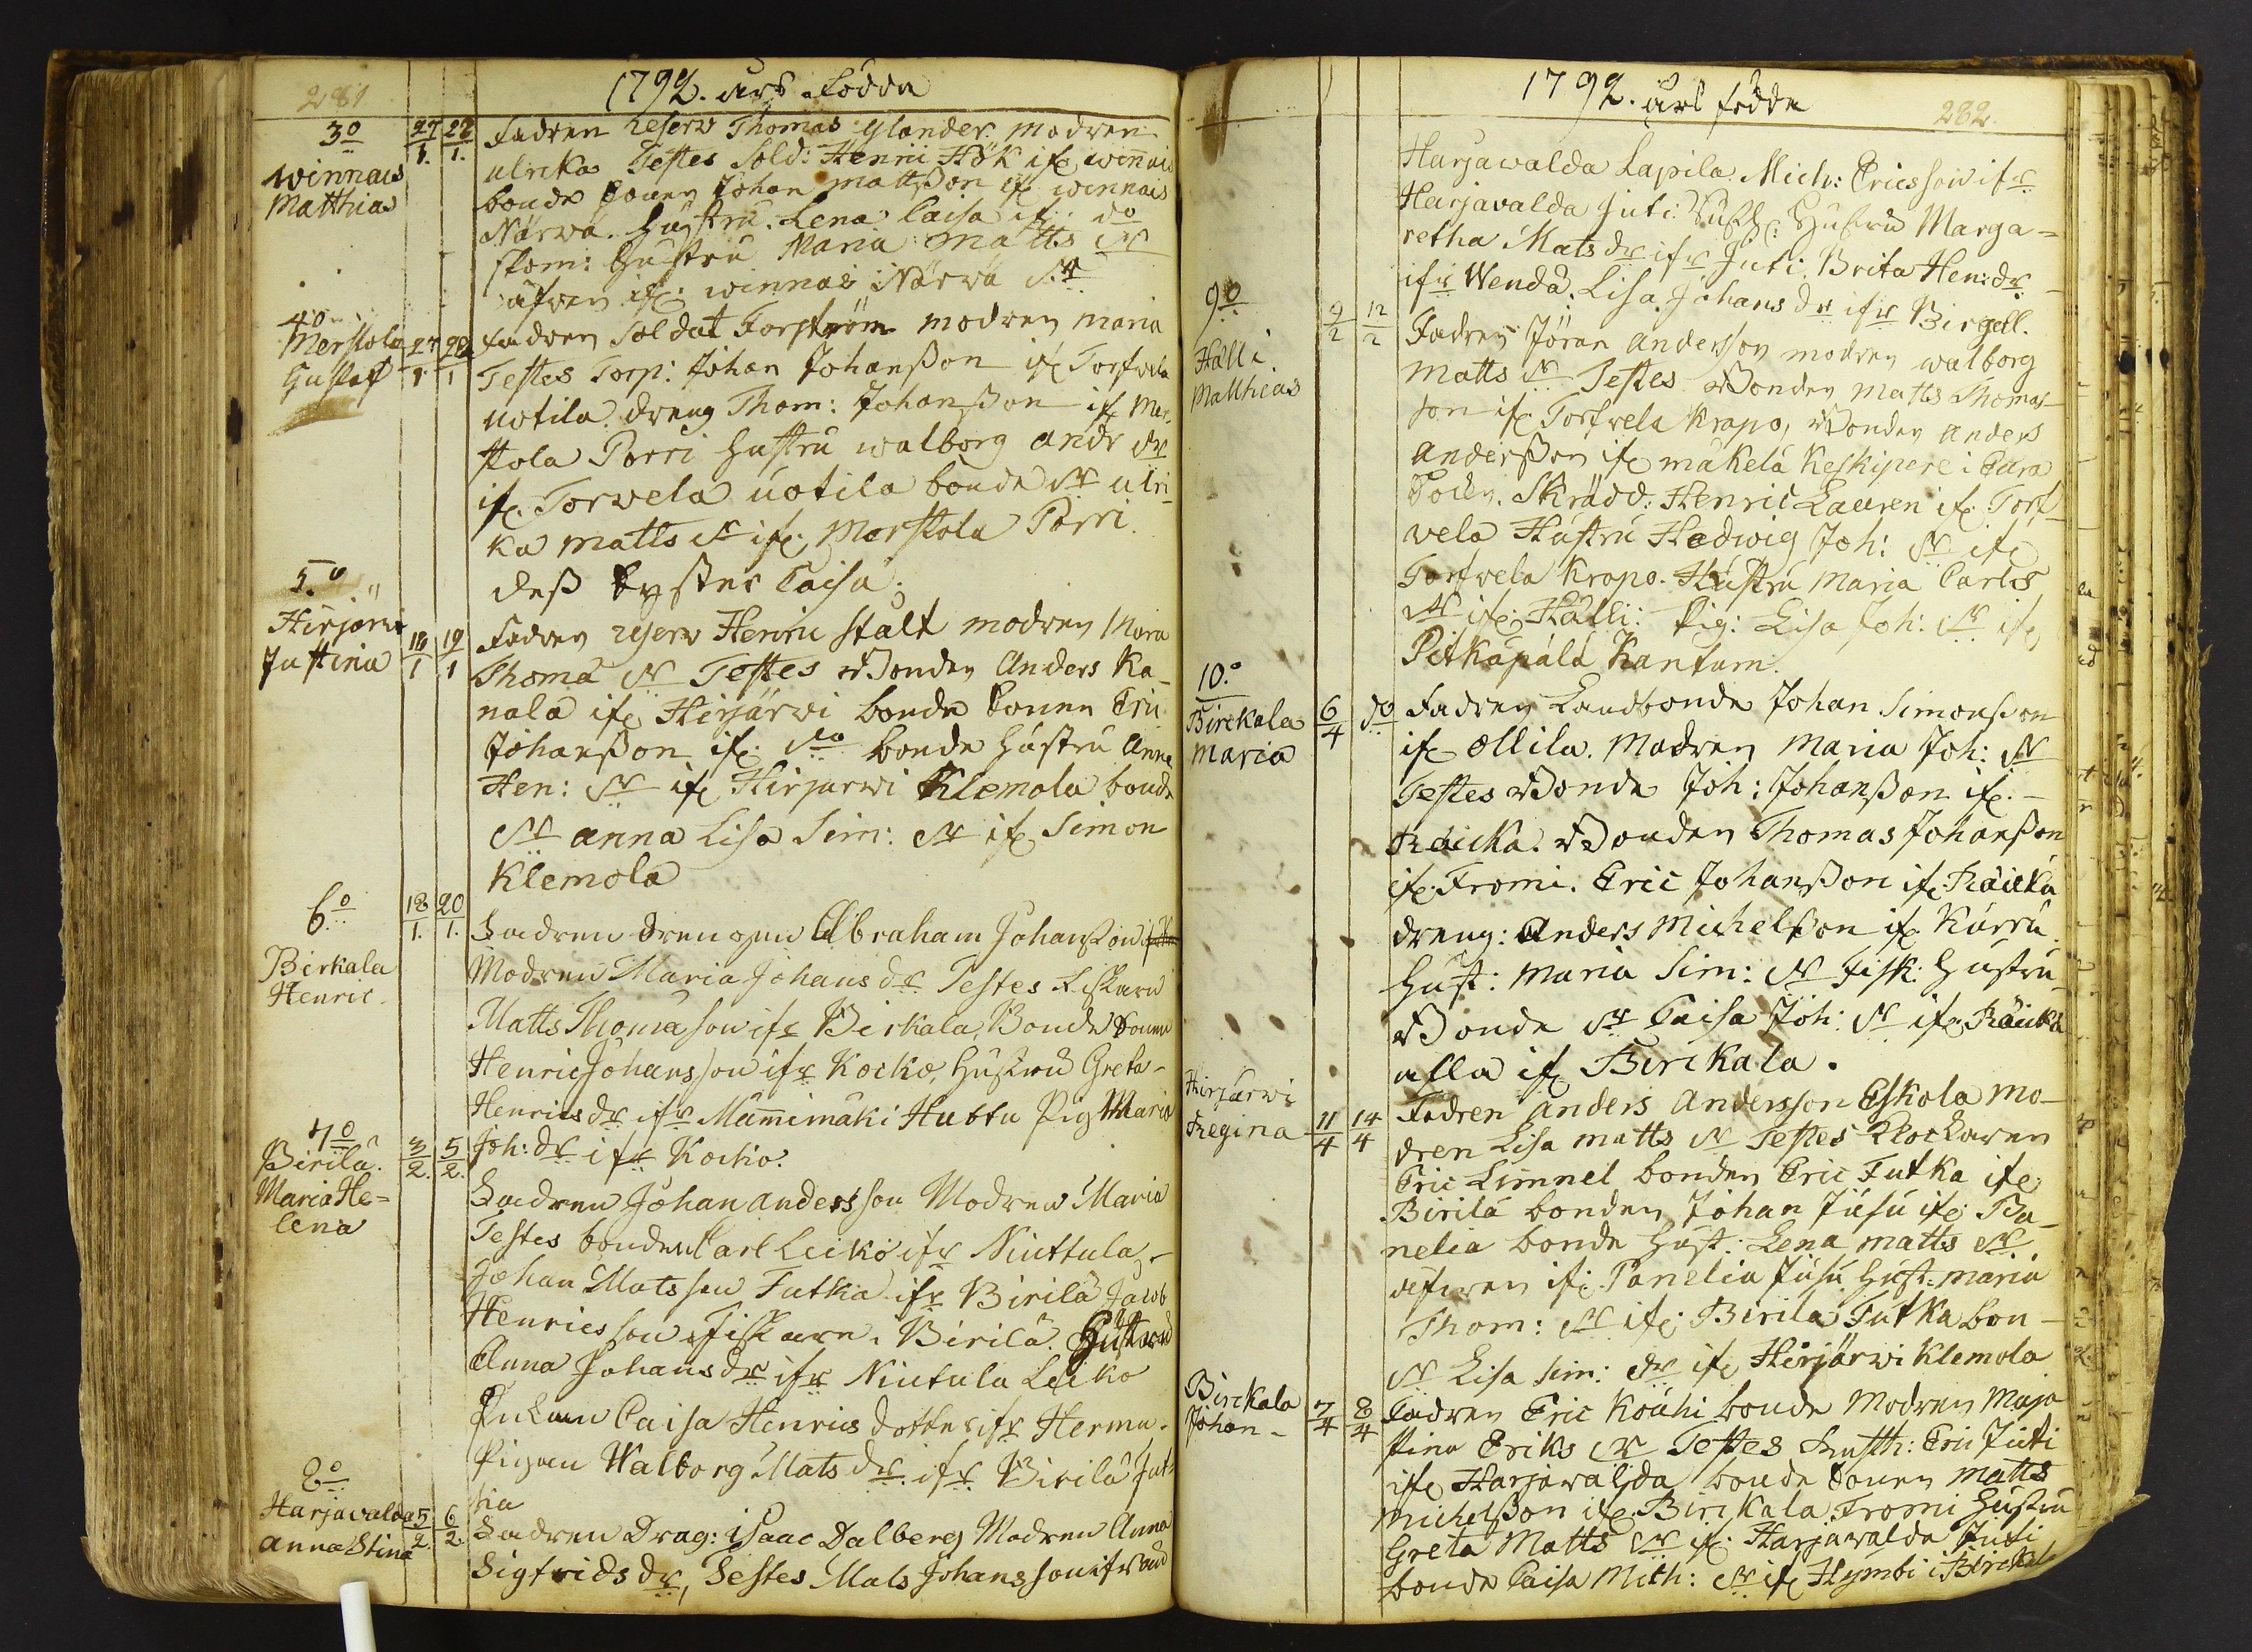 281
1792. års Födda
3o
Winnais
Matthias
27 28
1. 1.
Fadren Reserv Thomas Glander. Modren
Ulrika Testes Sold: Henric Hök ifr. Winnais
bonde Sonen Johan Mattsson ifr Winnais
Närwä. Hustru. Lena Caisa ifr: do
Hustru Maria Matts dr
äfven ifr: Winnais Närwä
4o
Merstola
Gustaf
27 28
1. 1
Fadren Soldat Forström Modren Maria
Testes Torp: Johan Johansson ifr Torfvela
Uotila. dreng Thom: Johansson ifr Mer-
stola Porri Hustru Walborg Andr dr
ifr. Torwela Uotila bonde dr Ulri-
ka Matts dr ifr. Merstola Porri.
dess Syster Caisa.
5.o
Hirjärvi
Justina
18 19
1 1
Fadren Reserv Henric Stált Modren Maria
Thoma dr Testes Bonden Anders Ka-
nala ifr Hirjärwi bonde Sonen Eric
Johansson ifr. do bonde Hustru Anna
Hen: dr ifr Hirjärwi Klemola bonde
dr Anna Lisa Sim: dr ifr Simon
Klemola
6o
Birkala
Henric.
18 20
1. 1.
Fadren Drengen Abraham Johansson
Modren Maria Johans dr Testes Fiskaren
Matts Thomasson ifr Birkala, Bonde Sonen
Henric Johansson ifr Kocko, Hustru Greta-
Henrics dr ifr Mammimäki Hubtu Pig Maria
Joh: dr ifr Kocko.
7o
Birilä.
Maria He=
lena
3 5
2. 2.
Fadren Johan Andersson Modren Maria
Testes bonden Carl Leiko ifr Niuttula,
Johan Matsson Futka ifr Birilä Jacob
Henricsson Fiskare i Birilä. Hustrun
Anna Johans dr ifr Niutula Leiko
Caisa Henrics dotter ifr Herma.
Pigan Walborg Mats dr ifr Birilä Fut-
ka
8o
Harjavalda
Anna Stina
5 6
2. 2.
Fadren Drag: Isaac Dalberg Modren Anna
Sigfrids dr, Testes Mats Johansson ifr
1792. års födda
282.
Harjawalda Lapila. Mich: Ericsson ifr
Harjavalda Juti. Hustru Marga=
retha Mats dr ifr Juti, Brita Hen: dr
ifr Wendä. Lisa Johans dr ifr Birgell.
9o
Hälli
Matthias
9 12
2 2
Fadren Jöran Andersson Modren Walborg
Matts dr Testes Bonden Matts Thomas-
son ifr Torfvela Krapo, Bonden Anders
Andersson ifr Mäkelä Keskipere i Eura
Sockn. Skrädd: Henric Lauren ifr. Torf-
vela Hustru Hedwig Joh: dr ifr
Torfwela Krapo. Hustru Maria Carls
dr ifr Hälli: Pig: Lisa Joh: dr ifr
Pitkäpälä Kantum.
10.o
Birckala
Maria
6 do
4
Fadren Landbonde Johan Simonsson
ifr Ollila. Modren Maria Joh: dr
Testes Bonde Joh: Johansson ifr.
Räicka. Bonden Thomas Johansson
ifr. Fromi. Eric Johansson ifr. Räicka
dreng: Anders Michelsson ifr. Kurru
Hust: Maria Sim: dr Fisk: Hustru
Bonde dr Caisa Joh: dr ifr Räicka
alla ifr Birckala.
Hirjärwi
Regina
11 14
4 4
Fadren Anders Andersson Eskola Mo-
dren Lisa Matts dr Testes Klockaren
Eric Limnel bonden Eric Futka ifr
Birilä bonden Johan Jusu ifr. Pa-
nelia bonde Hust: Lena Matts dr.
äfwen ifr. Panelia Jusu Hust: Maria
Thom: dr ifr. Birila Futka bon-
dr Lisa Sim: dr ifr Hirjärwi Klemola
Birckala
Johan-
7 8
4 4
Fadren Eric Kouhi bonde Modren Maja
Stina Eriks dr Testes Eric Juti
ifr Harjawalda bonde Sonen Matts
Michelsson ifr Birckala Fromi Hustru
Greta Matts dr ifr. Harjawalda Juti
bonde Caisa Mich: dr ifr Hymbi i Birckala